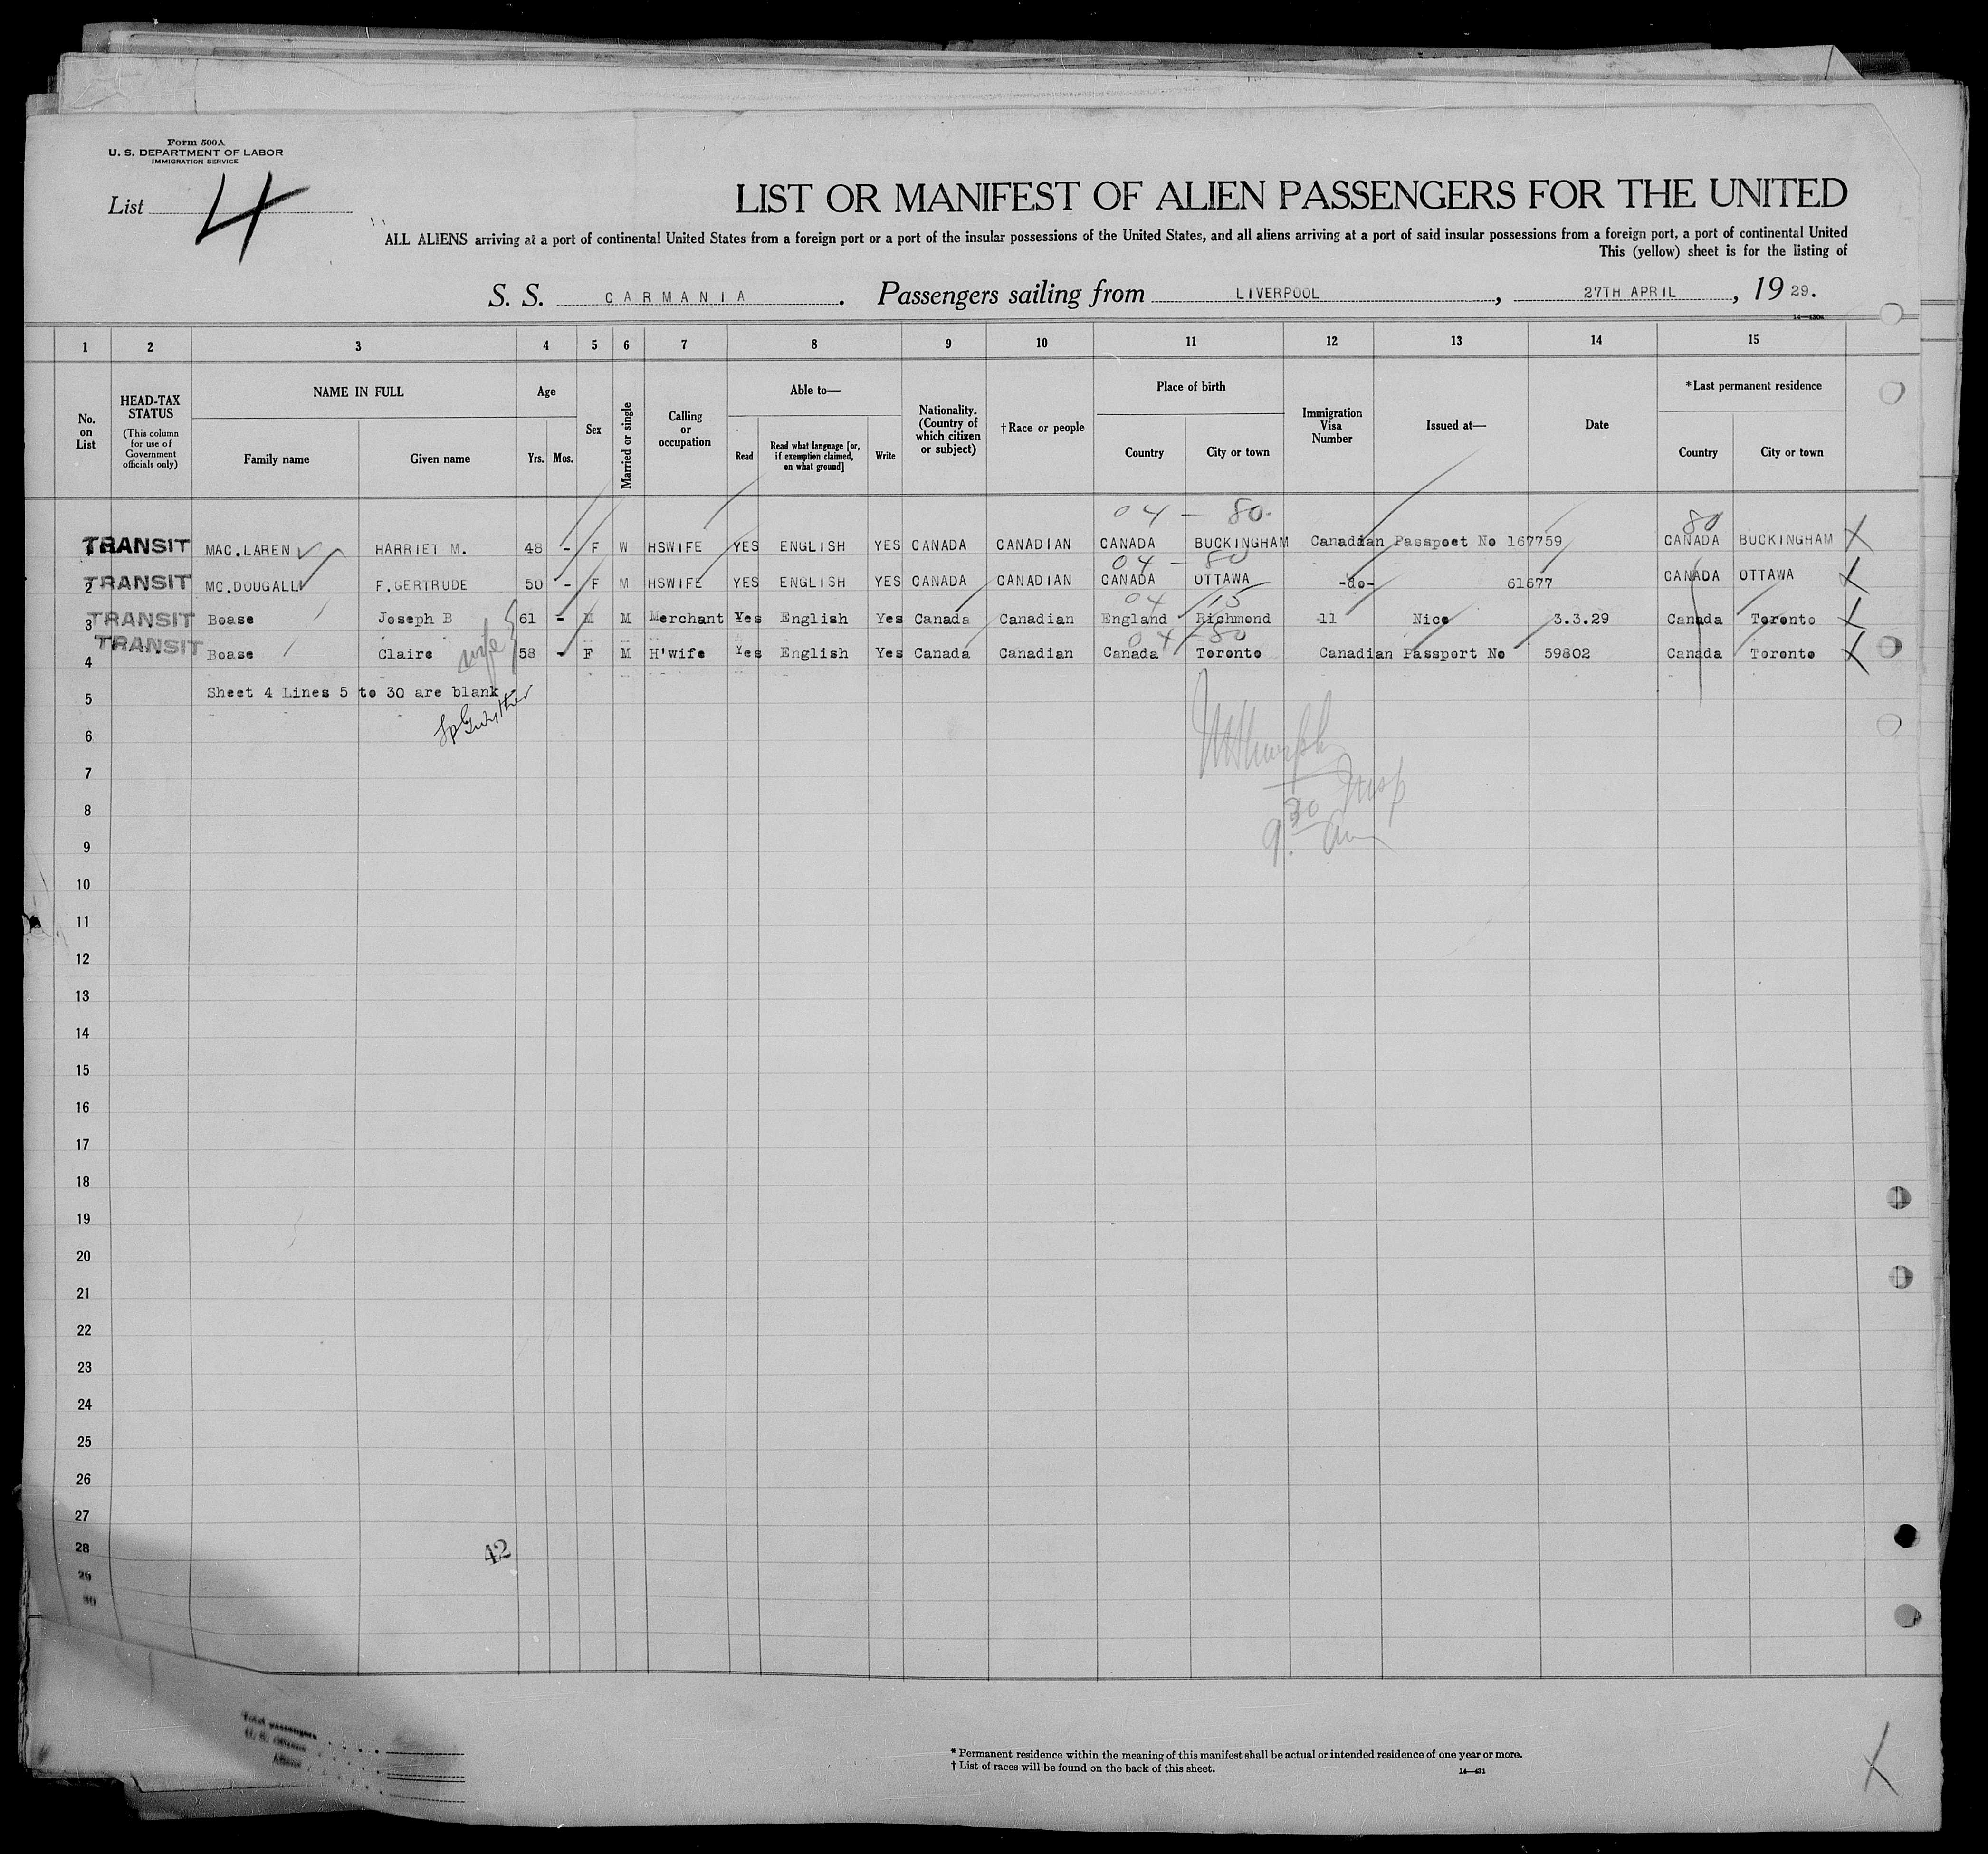 Form 500A
U. S. DEPARTMENT OF LABOR
IMMIGRATION SERVICE
List 4
LIST OR MANIFEST OF ALIEN PASSENGERS FOR THE UNITED
ALL ALIENS arriving at a port of continental United States from a foreign port or a port of the insular possessions of the United States, and all aliens arriving at a port of said insular possessions from a foreign port, a port of continental United
This (yellow) sheet is for the listing of
S. S. CARMANIA. Passengers sailing from LIVERPOOL, 27TH APRIL, 1929.
14—430a
1 2 3 4 5 6 7 8 9 10 11 12 13 14 15
No. on List
HEAD-TAX STATUS
(This column for use of Government officials only)
NAME IN FULL
Family name Given name
Age
Yrs. Mos.
Sex
Married or single
Calling or occupation
Able to—
Read
Read what language [or, if exemption claimed, on what ground]
Write
Nationality. (Country of which citizen or subject)
†Race or people
Place of birth
Country City or town
Immigration Visa Number
Issued at—
Date
*Last permanent residence
Country City or town
04 — 80. 80
TRANSIT MAC.LAREN HARRIET M. 48 - F W HSWIFE YES ENGLISH YES CANADA CANADIAN CANADA BUCKINGHAM Canadian Passpoet No 167759 CANADA BUCKINGHAM X
04 - 80
2 TRANSIT MC.DOUGALL F.GERTRUDE 50 - F M HSWIFE YES ENGLISH YES CANADA CANADIAN CANADA OTTAWA -do- 61577 CANADA OTTAWA X
04 15
3 TRANSIT Boase Joseph B 61 - M M Merchant Yes English Yes Canada Canadian England Richmond 11 Nice 3.3.29 Canada Toronto X
wife
04 - 80
4 TRANSIT Boase Claire 58 - F M H'wife Yes English Yes Canada Canadian Canada Toronto Canadian Passport No 59802 Canada Toronto X
5 Sheet 4 Lines 5 to 30 are blank
6
7
8
9
9.30 am
10
11
12
13
14
15
16
17
18
19
20
21
22
23
24
25
26
27
28
42
29
30
Total passengers
U. S. citizens
Aliens
* Permanent residence within the meaning of this manifest shall be actual or intended residence of one year or more.
† List of races will be found on the back of this sheet.
14—431
X